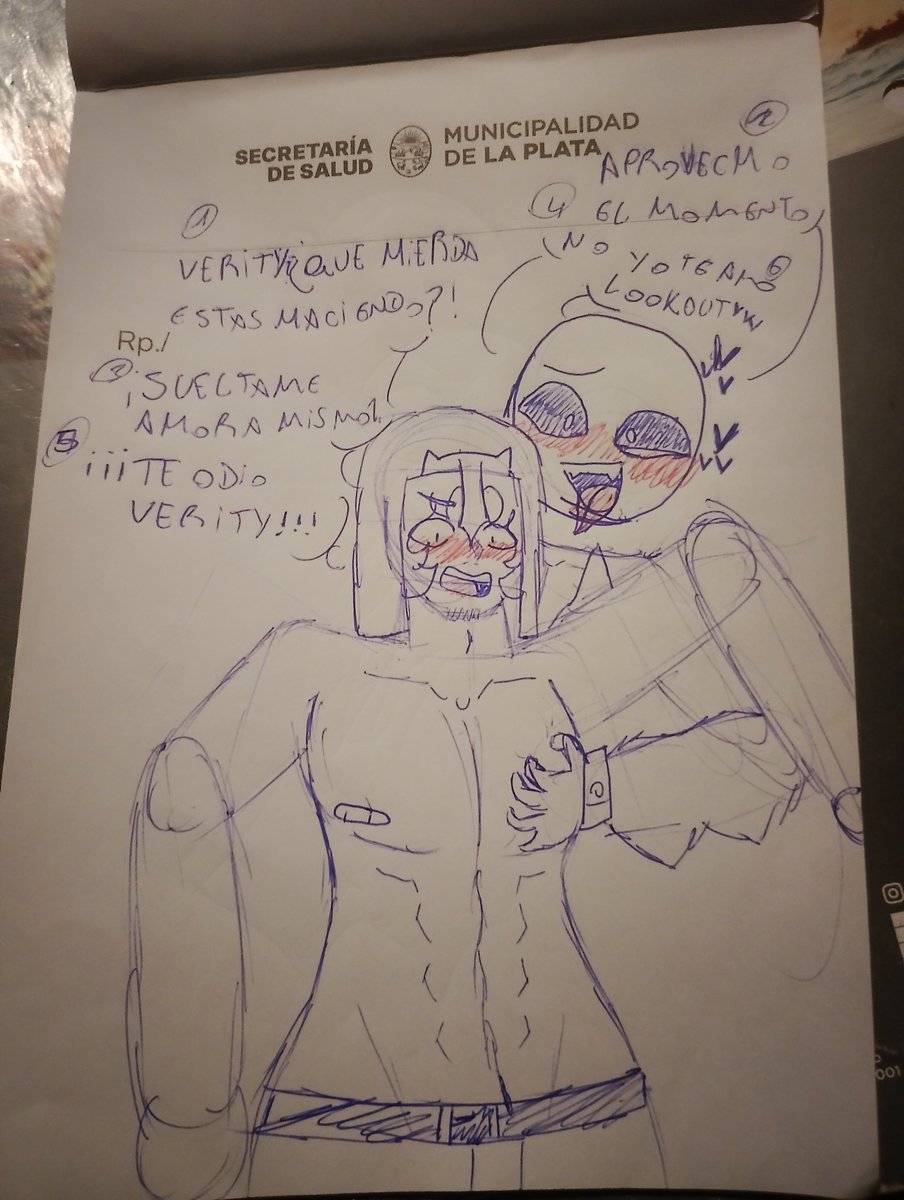 SECRETARÍA
DE SALUD
MUNICIPALIDAD
DE LA PLATA
1
VERITY ¿QUE MIERDA
ESTAS MACIENDO?!
2
APROVECMO
EL MOMENTO
Rp./
3
¡SUELTAME
AMORA MISMO!
4
NO
5
¡¡¡TE ODIO
VERITY!!!
6
YO TE AMO
LOOKOUT
001